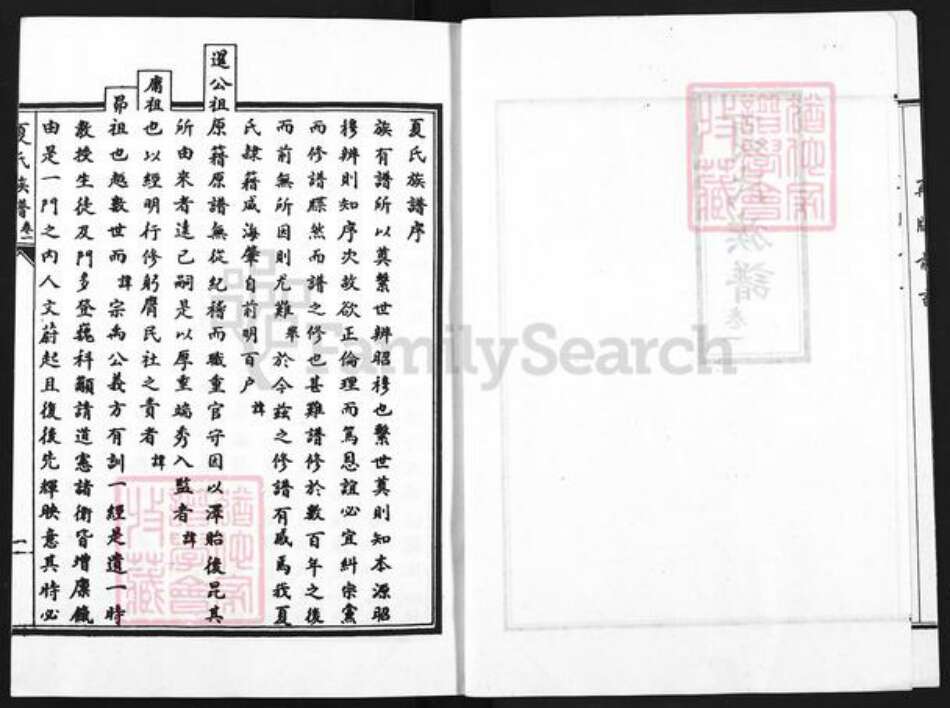 夏氏族譜序
族有譜所以奠繫世辨昭穆也繫世奠則知本源昭
穆辨則知序次故欲正倫理而篤恩誼必宜糾宗黨
而修譜牒然而譜之修也甚難譜修於數百年之後
而前無所因則尤難舉於今茲之修譜有感焉我夏
氏隸籍威海肇自前明百户諱
選公祖原籍原譜無從紀稽而職重官守因以澤貽後昆其
所由來者遠已嗣是以厚重端秀入監者諱
膺祖也以經明行修躬膺民社之責者諱
昴祖也越數世而諱宗禹公義方有訓一經是遺一時
教授生徒及門多登巍科顯請道憲諸衛皆增廩餼
由是一門之內人文蔚起且復後先輝映意其時必
夏氏族譜 卷一
一
氏族譜 卷一
譜學會
收藏
譜學會
收藏
FamilySearch